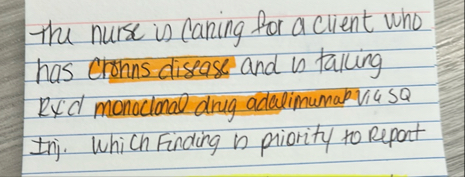 The nurse is caring for a client who
has Crohns disease and is taking
Rx'd monoclonal drug adalimumab via SQ
Inj. Which Finding is priority to Report